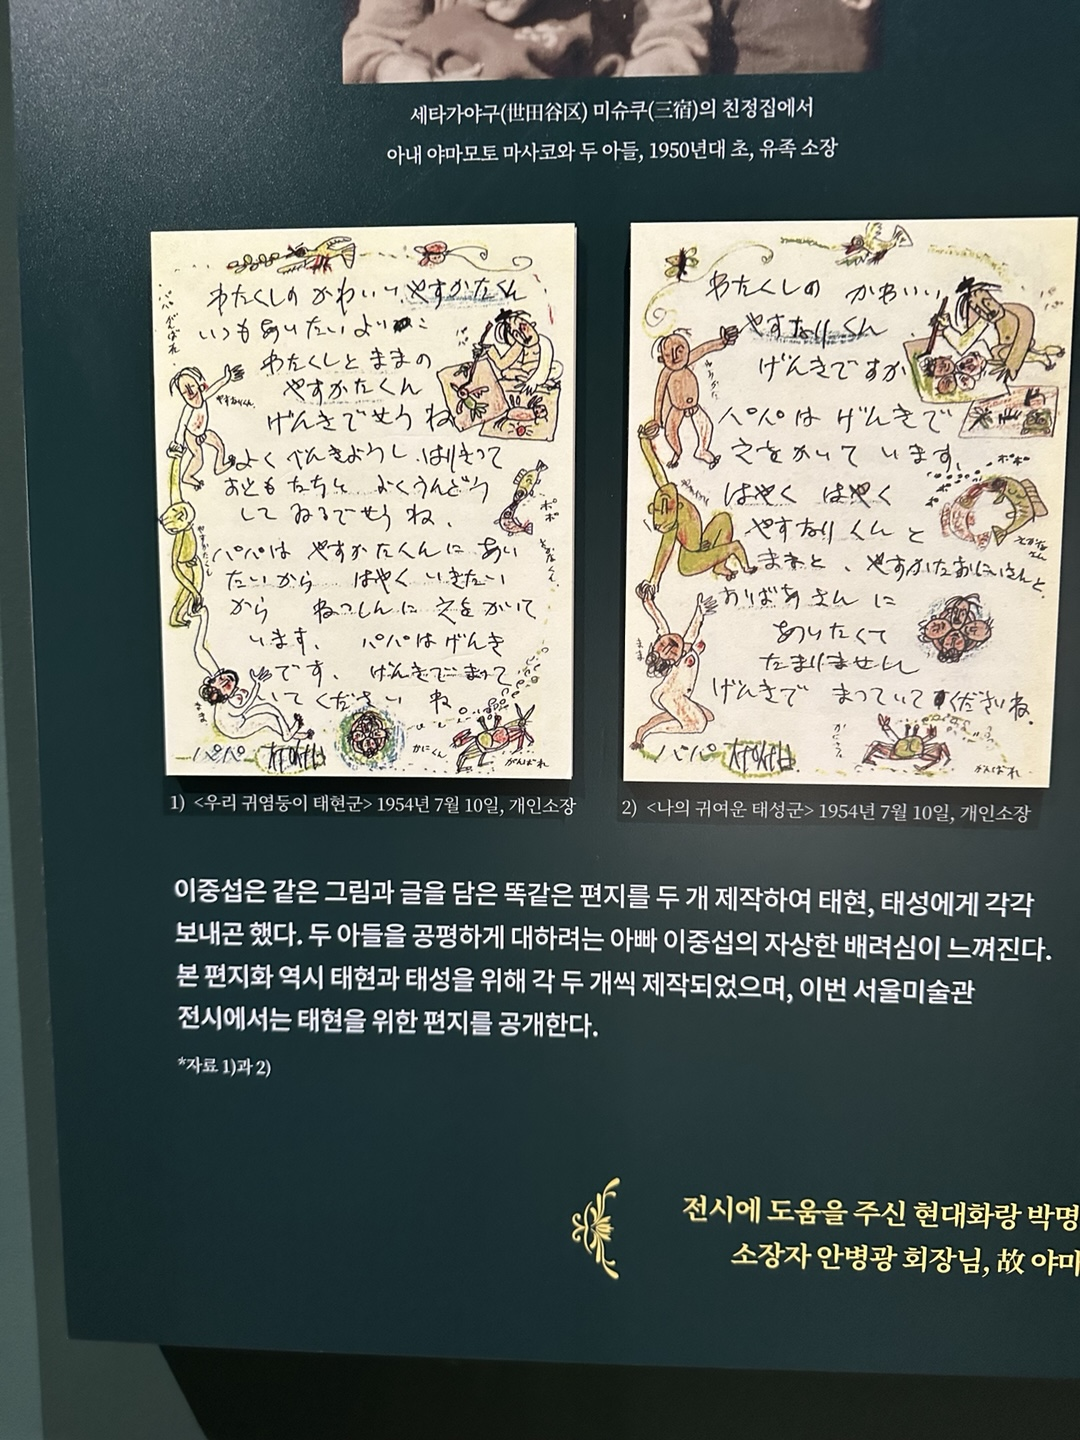 세타가야구(世田谷区) 미슈쿠(三宿)의 친정집에서
아내 야마모토 마사코와 두 아들, 1950년대 초, 유족 소장
わたくしの かわいい、やすかたくん、
いつも あいたい
わたくしと ままの
やすかたくん
げんきでせう ね
よく べんきようし、はりきつて
おともだちと よくうんどう
して ゐるでせう ね、
パパは やすかたくんに あい
たいから はやく いきたい
から ねつしんに 之を かいて
います、 パパは げんき
です、 げんきで まつて
いて ください ね
かにくん
がんばれ
パパ
わたくしの かわいい
やすなりくん
げんきですか
パパは げんきで
之を かいて います、
はやく はやく
やすなりくんと
ままと、やすかたおにいさんと、
おりばあさんに
あいたくて
たまりません
げんきで まつていて くださいね、
パパ
がんばれ
1) <우리 귀염둥이 태현군> 1954년 7월 10일, 개인소장
2) <나의 귀여운 태성군> 1954년 7월 10일, 개인소장
이중섭은 같은 그림과 글을 담은 똑같은 편지를 두 개 제작하여 태현, 태성에게 각각
보내곤 했다. 두 아들을 공평하게 대하려는 아빠 이중섭의 자상한 배려심이 느껴진다.
본 편지화 역시 태현과 태성을 위해 각 두 개씩 제작되었으며, 이번 서울미술관
전시에서는 태현을 위한 편지를 공개한다.
*자료 1)과 2)
전시에 도움을 주신 현대화랑 박명
소장자 안병광 회장님, 故 야마